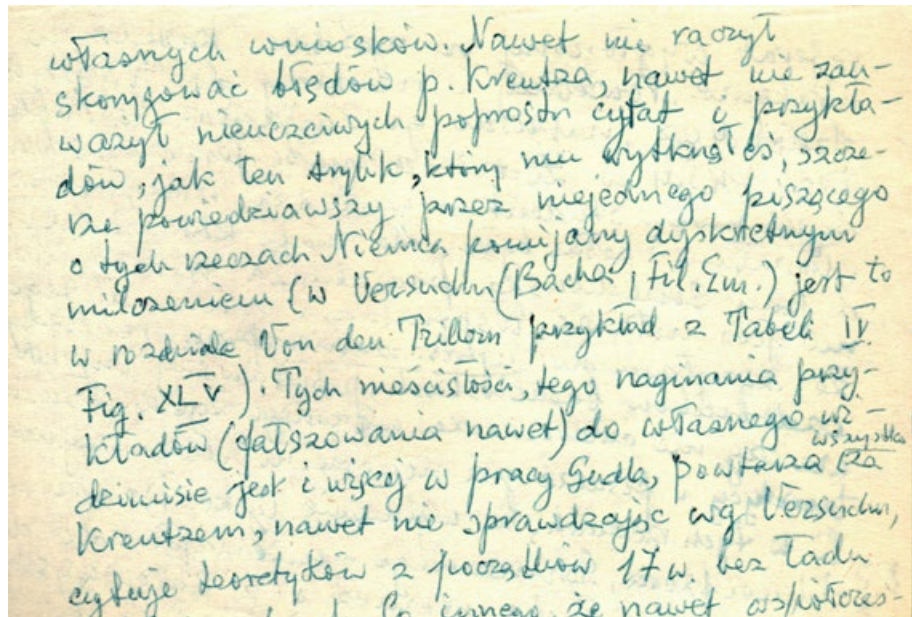 własnych wniosków. Nawet nie raczył
skorygować błędów p. Kreutza, nawet nie zau-
ważył nieuczciwych poprostu cytat i przykła-
dów, jak ten trylik, który mu wytknąłeś, szcze-
rze powiedziawszy przez niejednego piszącego
o tych rzeczach Niemca pomijany dyskretnym
milczeniem (w Versuchu (Bacha, Fil. Em.) jest to
w rozdziale Von den Trillern przykład z Tabeli IV
Fig. XLV). Tych nieścisłości, tego naginania przy-
kładów (fałszowania nawet) do własnego wi-
dzimisię jest i więcej w pracy Gudla, powtarza wszystko za
Kreutzem, nawet nie sprawdzając wg Versuchu,
cytuje teoretyków z początków 17 w. bez ładu
Co innego, że nawet współczes-